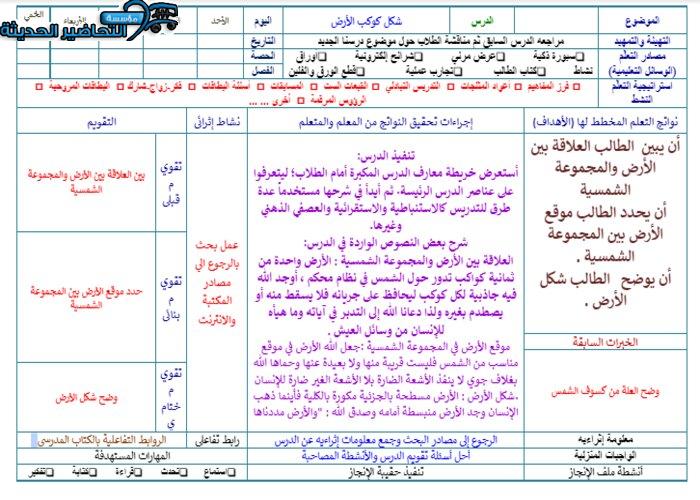 مؤسسة التحاضير الحديثة
الموضوع
شكل كوكب الأرض
الدرس
اليوم
الأحد
الأربعاء
الخمي
التهيئة والتمهيد
مراجعه الدرس السابق ثم مناقشة الطلاب حول موضوع درسنا الجديد
التاريخ
مصادر التعلم
(الوسائل التعليمية)
سبورة ذكية
عرض مرئي
شرائح إلكترونية
أوراق
نشاط
كتاب الطالب
تجارب عملية
قطع الورق والفلين
الحصة
الفصل
استراتيجية التعلم
النشط
فرز المفاهيم
اعواد المثلجات
التدريس التبادلي
القبعات الست
المسابقات
أسئلة البطاقات
فكر.زواج.شارك
البطاقات المروحية
الرؤوس المرقمة
أخرى ... ...
نواتج التعلم المخطط لها (الأهداف)
إجراءات تحقيق النواتج من المعلم والمتعلم
نشاط إثرائى
التقويم
أن يبين الطالب العلاقة بين
الأرض والمجموعة
الشمسية
أن يحدد الطالب موقع
الأرض بين المجموعة
الشمسية .
أن يوضح الطالب شكل
الأرض .
الخبرات السابقة
وضح العلة من كسوف الشمس
تنفيذ الدرس:
أستعرض خريطة معارف الدرس المكبرة أمام الطلاب؛ ليتعرفوا
على عناصر الدرس الرئيسة. ثم أبدأ في شرحها مستخدماً عدة
طرق للتدريس كالاستنباطية والاستقرائية والعصفي الذهني
وغيرها.
شرح بعض النصوص الواردة في الدرس:
العلاقة بين الأرض والمجموعة الشمسية : الأرض واحدة من
ثمانية كواكب تدور حول الشمس في نظام محكم ، أوجد الله
فيه جاذبية لكل كوكب ليحافظ على جريانه فلا يسقط منه أو
يصطدم بغيره ولذا دعانا الله إلى التدبر في آياته وما هيأه
للإنسان من وسائل العيش .
موقع الأرض في المجموعة الشمسية :جعل الله الأرض في موقع
مناسب من الشمس فليست قريبة منها ولا بعيدة عنها وحماها الله
بغلاف جوي لا ينفذ الأشعة الضارة بلا الأشعة الغير ضارة للإنسان
.شكل الأرض : الأرض مسطحة بالجزئية مكورة بالكلية فأينما ذهب
الإنسان وجد الأرض منبسطة أمامه وصدق الله : "والأرض مددناها
عمل بحث
بالرجوع الي
مصادر
المكتبة
والانترنت
تقوي
م
قبلى
بين العلاقة بين الأرض والمجموعة
الشمسية
تقوي
م
بنائى
حدد موقع الأرض بين المجموعة
الشمسية
تقوي
م
ختام
ي
وضح شكل الأرض
معلومة إثرائيه
الرجوع إلى مصادر البحث وجمع معلومات إثرائيه عن الدرس
رابط تفاعلى
الروابط التفاعلية بالكتاب المدرسى
الواجبات المنزلية
أحل أسئلة تقويم الدرس والأنشطة المصاحبة
المهارات المستهدفة
أنشطة ملف الإنجاز
تنفيذ حقيبة الإنجاز
استماع
تحدث
قراءة
كتابة
تفكير